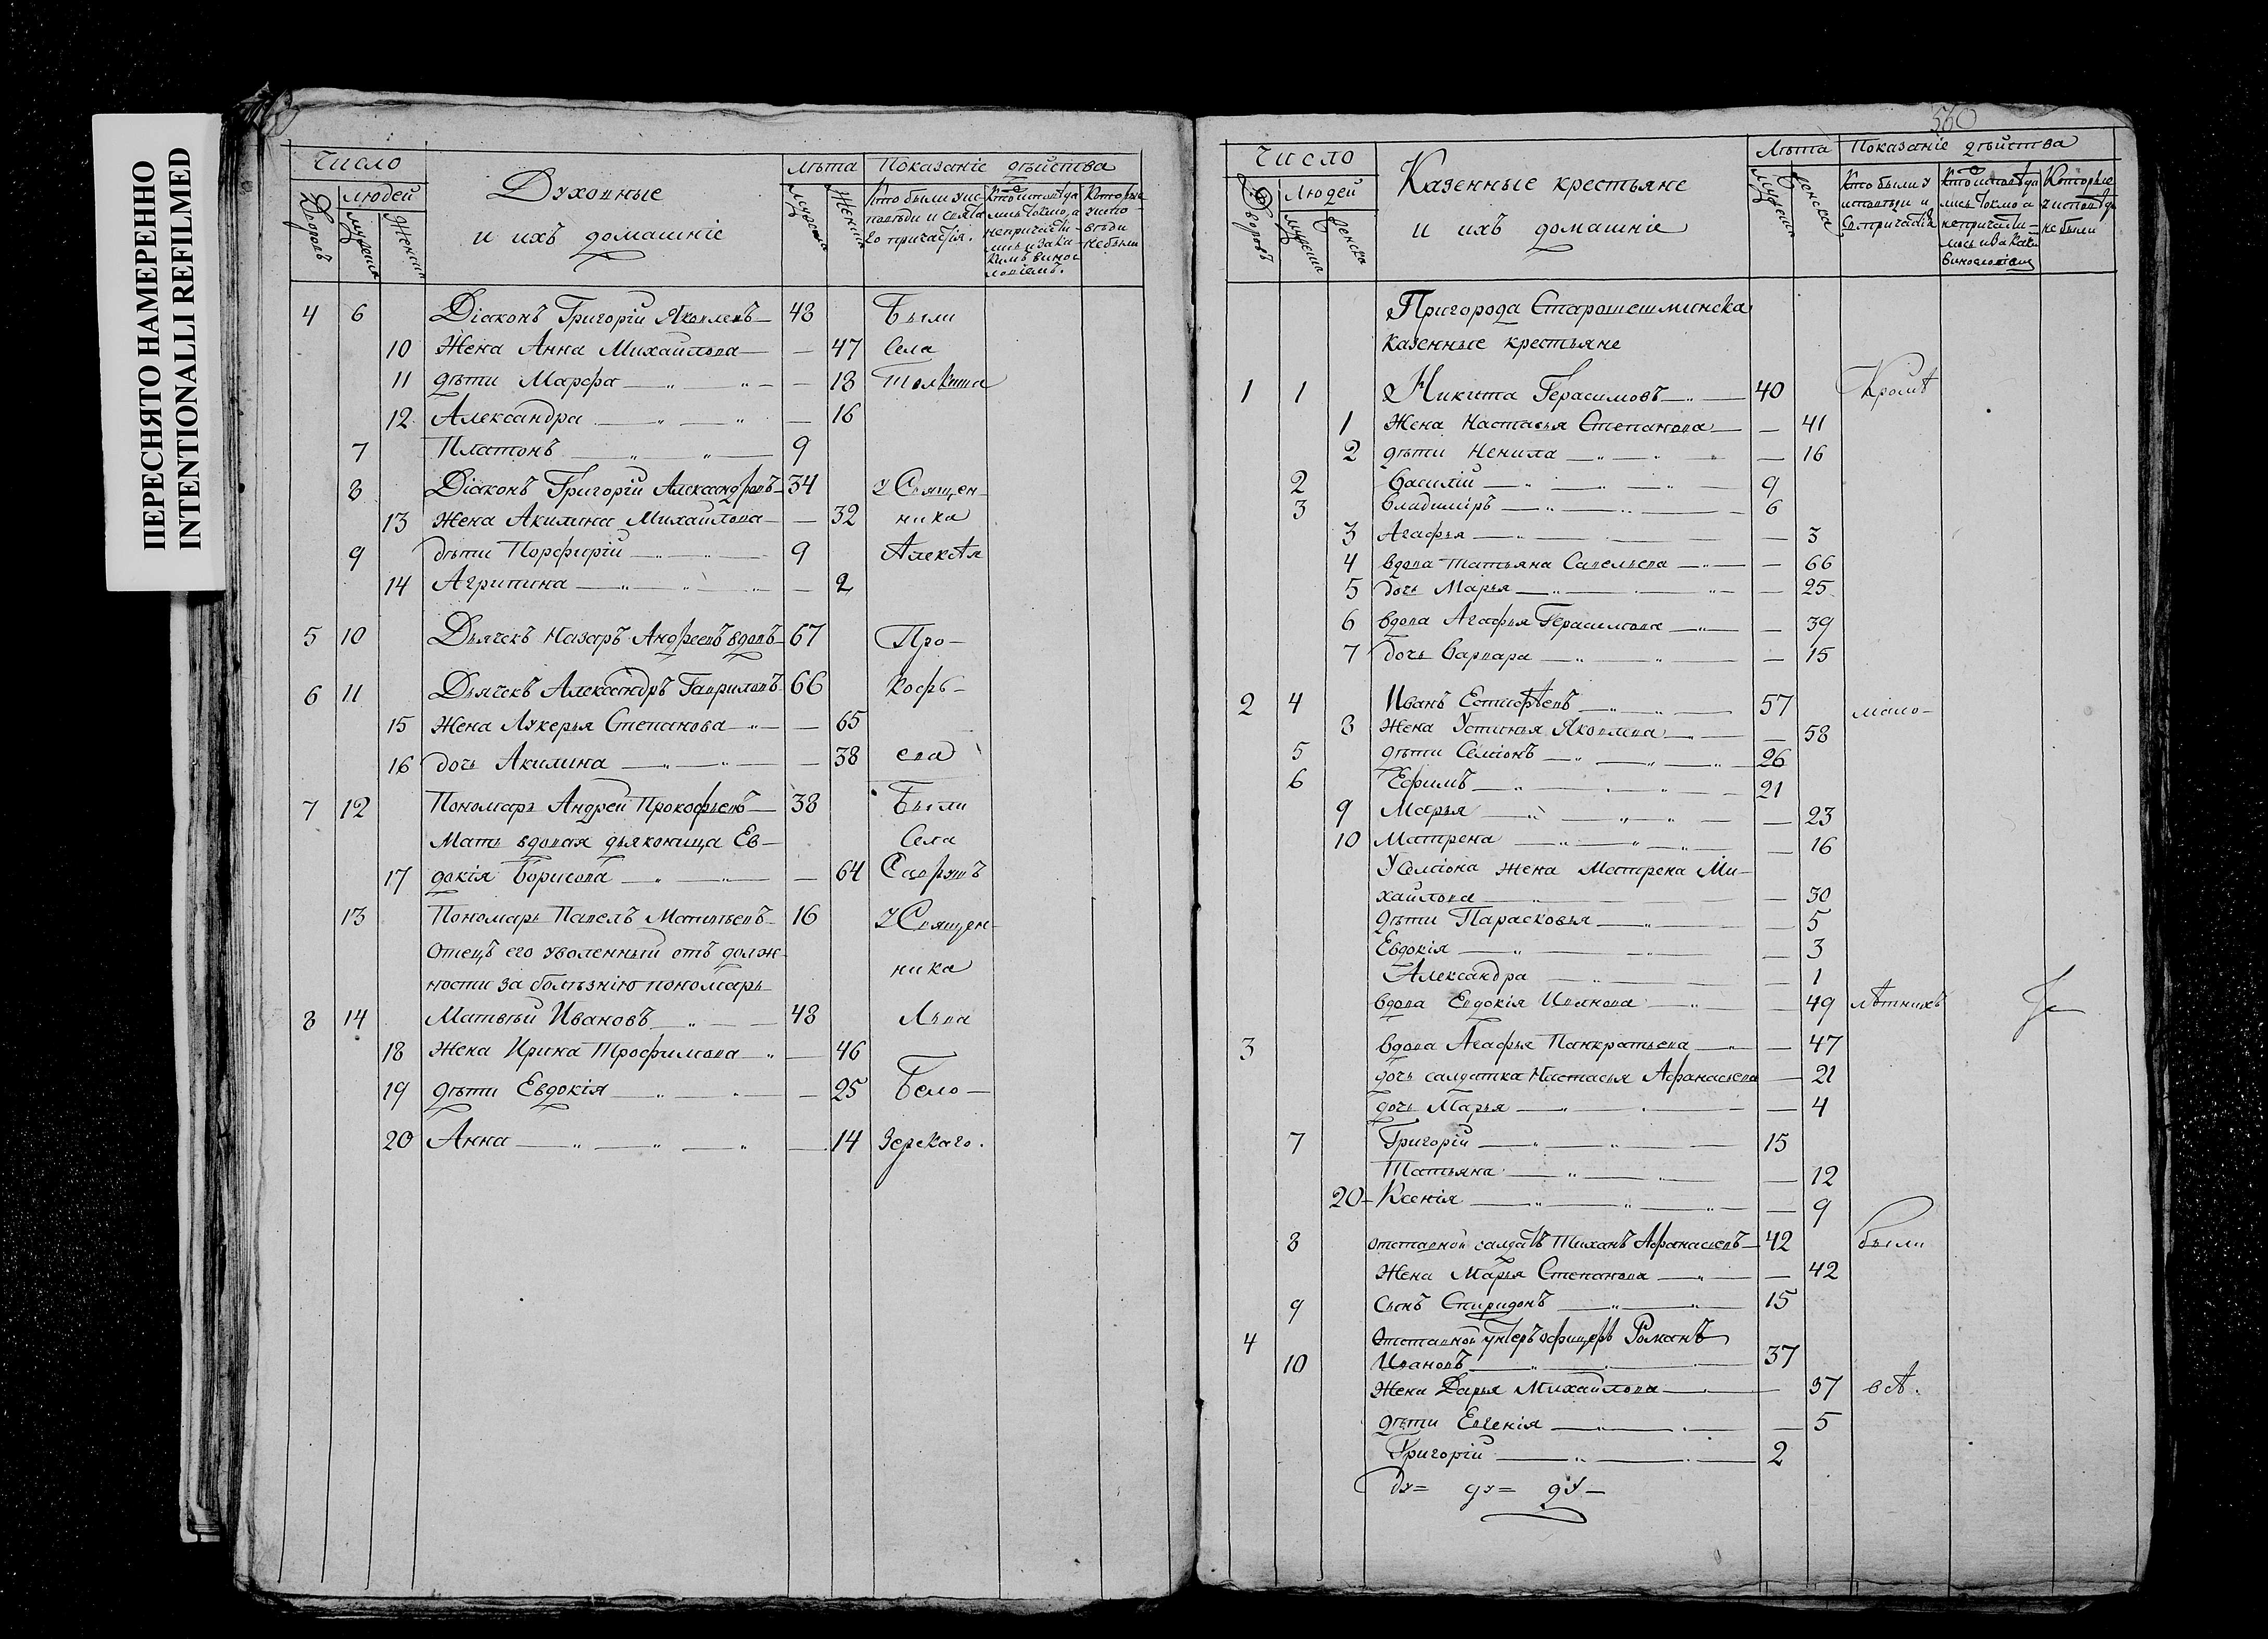 ПЕРЕСНЯТО НАМЕРЕННО
INTENTIONALLI REFILMED
Число
Дворовъ
людей
мужеска
женска
Духовные
и ихъ домашніе
лѣта
мужеска
женска
Показаніе дѣйства
Кто были у ис-
повѣди и свята
го причастія.
Кто исповѣда
лись токмо, а
непричасти-
лись и за ка-
кимъ винос
ловіемъ.
Которые
у испо-
вѣди
не были
4 6 Діаконъ Григорій Яковлевъ 48 Были
10 Жена Анна Михайлова — 47 Села
11 дѣти Марфа — 18 Толкиша
12 Александра — 16
7 Платонъ 9
8 Діаконъ Григорій Александровъ 34 у Священ-
13 Жена Акилина Михайлова — 32 ника
9 дѣти Порфирій 9 Алексѣя
14 Агрипина — 2
5 10 Дьячекъ Назаръ Андреевъ вдовъ 67 Про-
6 11 Дьячекъ Александръ Гавриловъ 66 кофь-
15 Жена Лукерья Степанова — 65
16 дочь Акилина — 38 ева
7 12 Пономарь Андрей Прокофьевъ 38 Были
Мать вдовая дьяконица Ев- Села
17 докія Борисова — 64
13 Пономарь Павелъ Матвѣевъ 16 у Священ-
Отецъ его уволенный отъ долж-
ности за болѣзнію пономарь ника
8 14 Матвѣй Ивановъ 48 Льва
18 Жена Ирина Трофимова — 46
19 дѣти Евдокія — 25 Бело-
20 Анна — 14 зерскаго.
560
Число
Дворовъ
Людей
мужеска
женска
Казенные крестьяне
и ихъ домашніе
Лѣта
мужеска
женска
Показаніе дѣйства
Кто были у
исповѣди и
св. причастія
Кто исповѣда
лись токмо а
непричасти-
лись и за каки
винословіем
Которые
у исповѣди
не были
Пригорода Старошешминска
казенные крестьяне
1 1 Никита Герасимовъ 40 Кромѣ
1 Жена Настасья Степанова — 41
2 дѣти Ненила — 16
2 Василій 9
3 Владиміръ 6
3 Агафья — 3
4 вдова Татьяна Савельева — 66
5 дочь Марья — 25
6 вдова Агафья Герасимова — 39
7 дочь Варвара — 15
2 4 Иванъ Естифѣевъ 57 мало-
8 Жена Устинья Яковлева — 58
5 дѣти Семіонъ 26
6 Ефимъ 21
9 Марья — 23
10 Матрена — 16
У Семіона жена Матрена Ми-
хайлова — 30
дѣти Парасковья — 5
Евдокія — 3
Александра — 1
вдова Евдокія Иванова — 49 лѣтнихъ
3 вдова Агафья Панкратьева — 47
дочь салдатка Настасья Афанасьева — 21
дочь Марья — 4
7 Григорій 15
Татьяна — 12
20 Ксенія — 9
8 отставной салдатъ Тиханъ Афанасьевъ 42 были
Жена Марья Степанова — 42
9 сынъ Спиридонъ 15
4 Отставной унтеръ офицеръ Романъ
10 Ивановъ 37
Жена Дарья Михайлова — 37 всѣ.
дѣти Евгенія — 5
Григорій 2